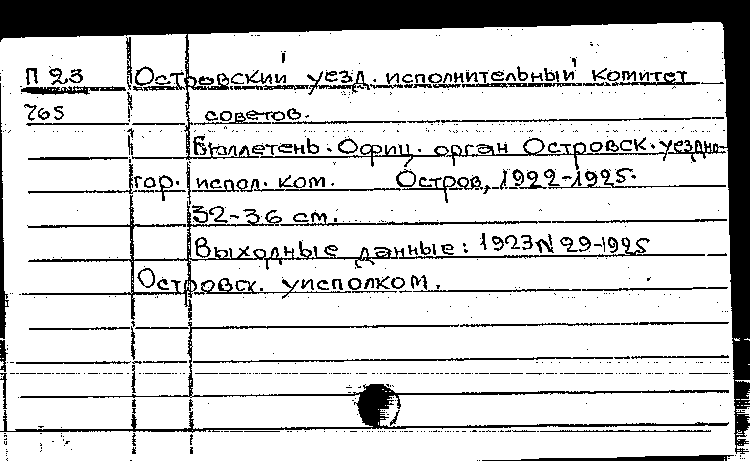 П 23 Островский уезд. исполнительный комитет
765 советов.
Бюллетень. Офиц. орган Островск. уездно-
гор. испол. ком. Остров, 1922-1925.
32-36 см.
Выходные данные: 1923 N 29-1925
Островск. уисполком.